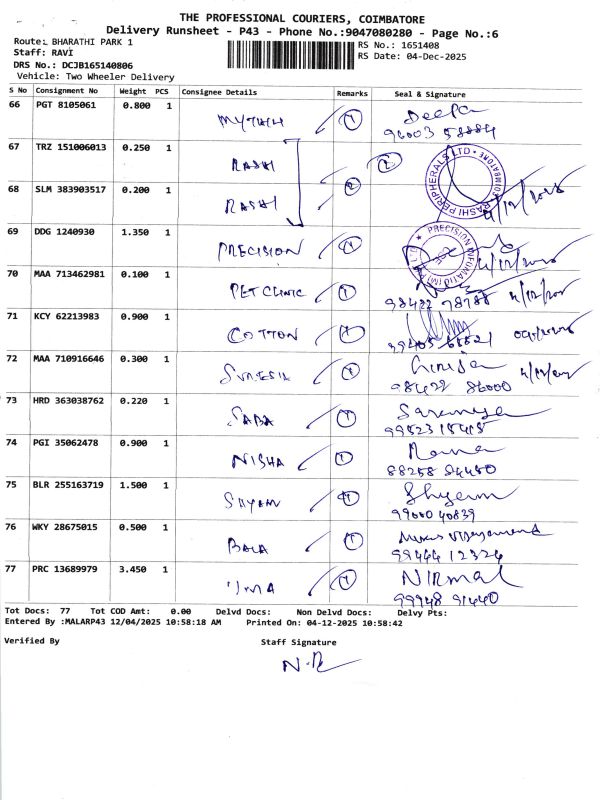 THE PROFESSIONAL COURIERS, COIMBATORE
Delivery Runsheet - P43 - Phone No.:9047080280 - Page No.:6
Route: BHARATHI PARK 1
RS No.: 1651408
Staff: RAVI
RS Date: 04-Dec-2025
DRS No.: DCJB165140806
Vehicle: Two Wheeler Delivery
S No Consignment No Weight PCS Consignee Details Remarks Seal & Signature
66 PGT 8105061 0.800 1 MYTHILI 1 Deepa
96003 58884
67 TRZ 151006013 0.250 1 RASHI 2
RASHI PERIPHERALS LTD COIMBATORE
68 SLM 383903517 0.200 1 RASHI 2 4/12/2025
69 DDG 1240930 1.350 1 PRECISION 1 4/12/2025
PRECISION INFOMATIC (M) PVT LTD
70 MAA 713462981 0.100 1 PET CLINIC 1
98422 78788
71 KCY 62213983 0.900 1 COTTON 1
72 MAA 710916646 0.300 1 SURESH 1 Girija
98422 86000
73 HRD 363038762 0.220 1 SABA 1 Saranya
74 PGI 35062478 0.900 1 NISHA 1
75 BLR 255163719 1.500 1 SHYAM 1 Shyam
99000 40839
76 WKY 28675015 0.500 1 BALA 1
99444 12324
77 PRC 13689979 3.450 1 UMA 1 NIRMAL
99948 91440
Tot Docs: 77 Tot COD Amt: 0.00 Delvd Docs: Non Delvd Docs: Delvy Pts:
Entered By :MALARP43 12/04/2025 10:58:18 AM Printed On: 04-12-2025 10:58:42
Verified By Staff Signature